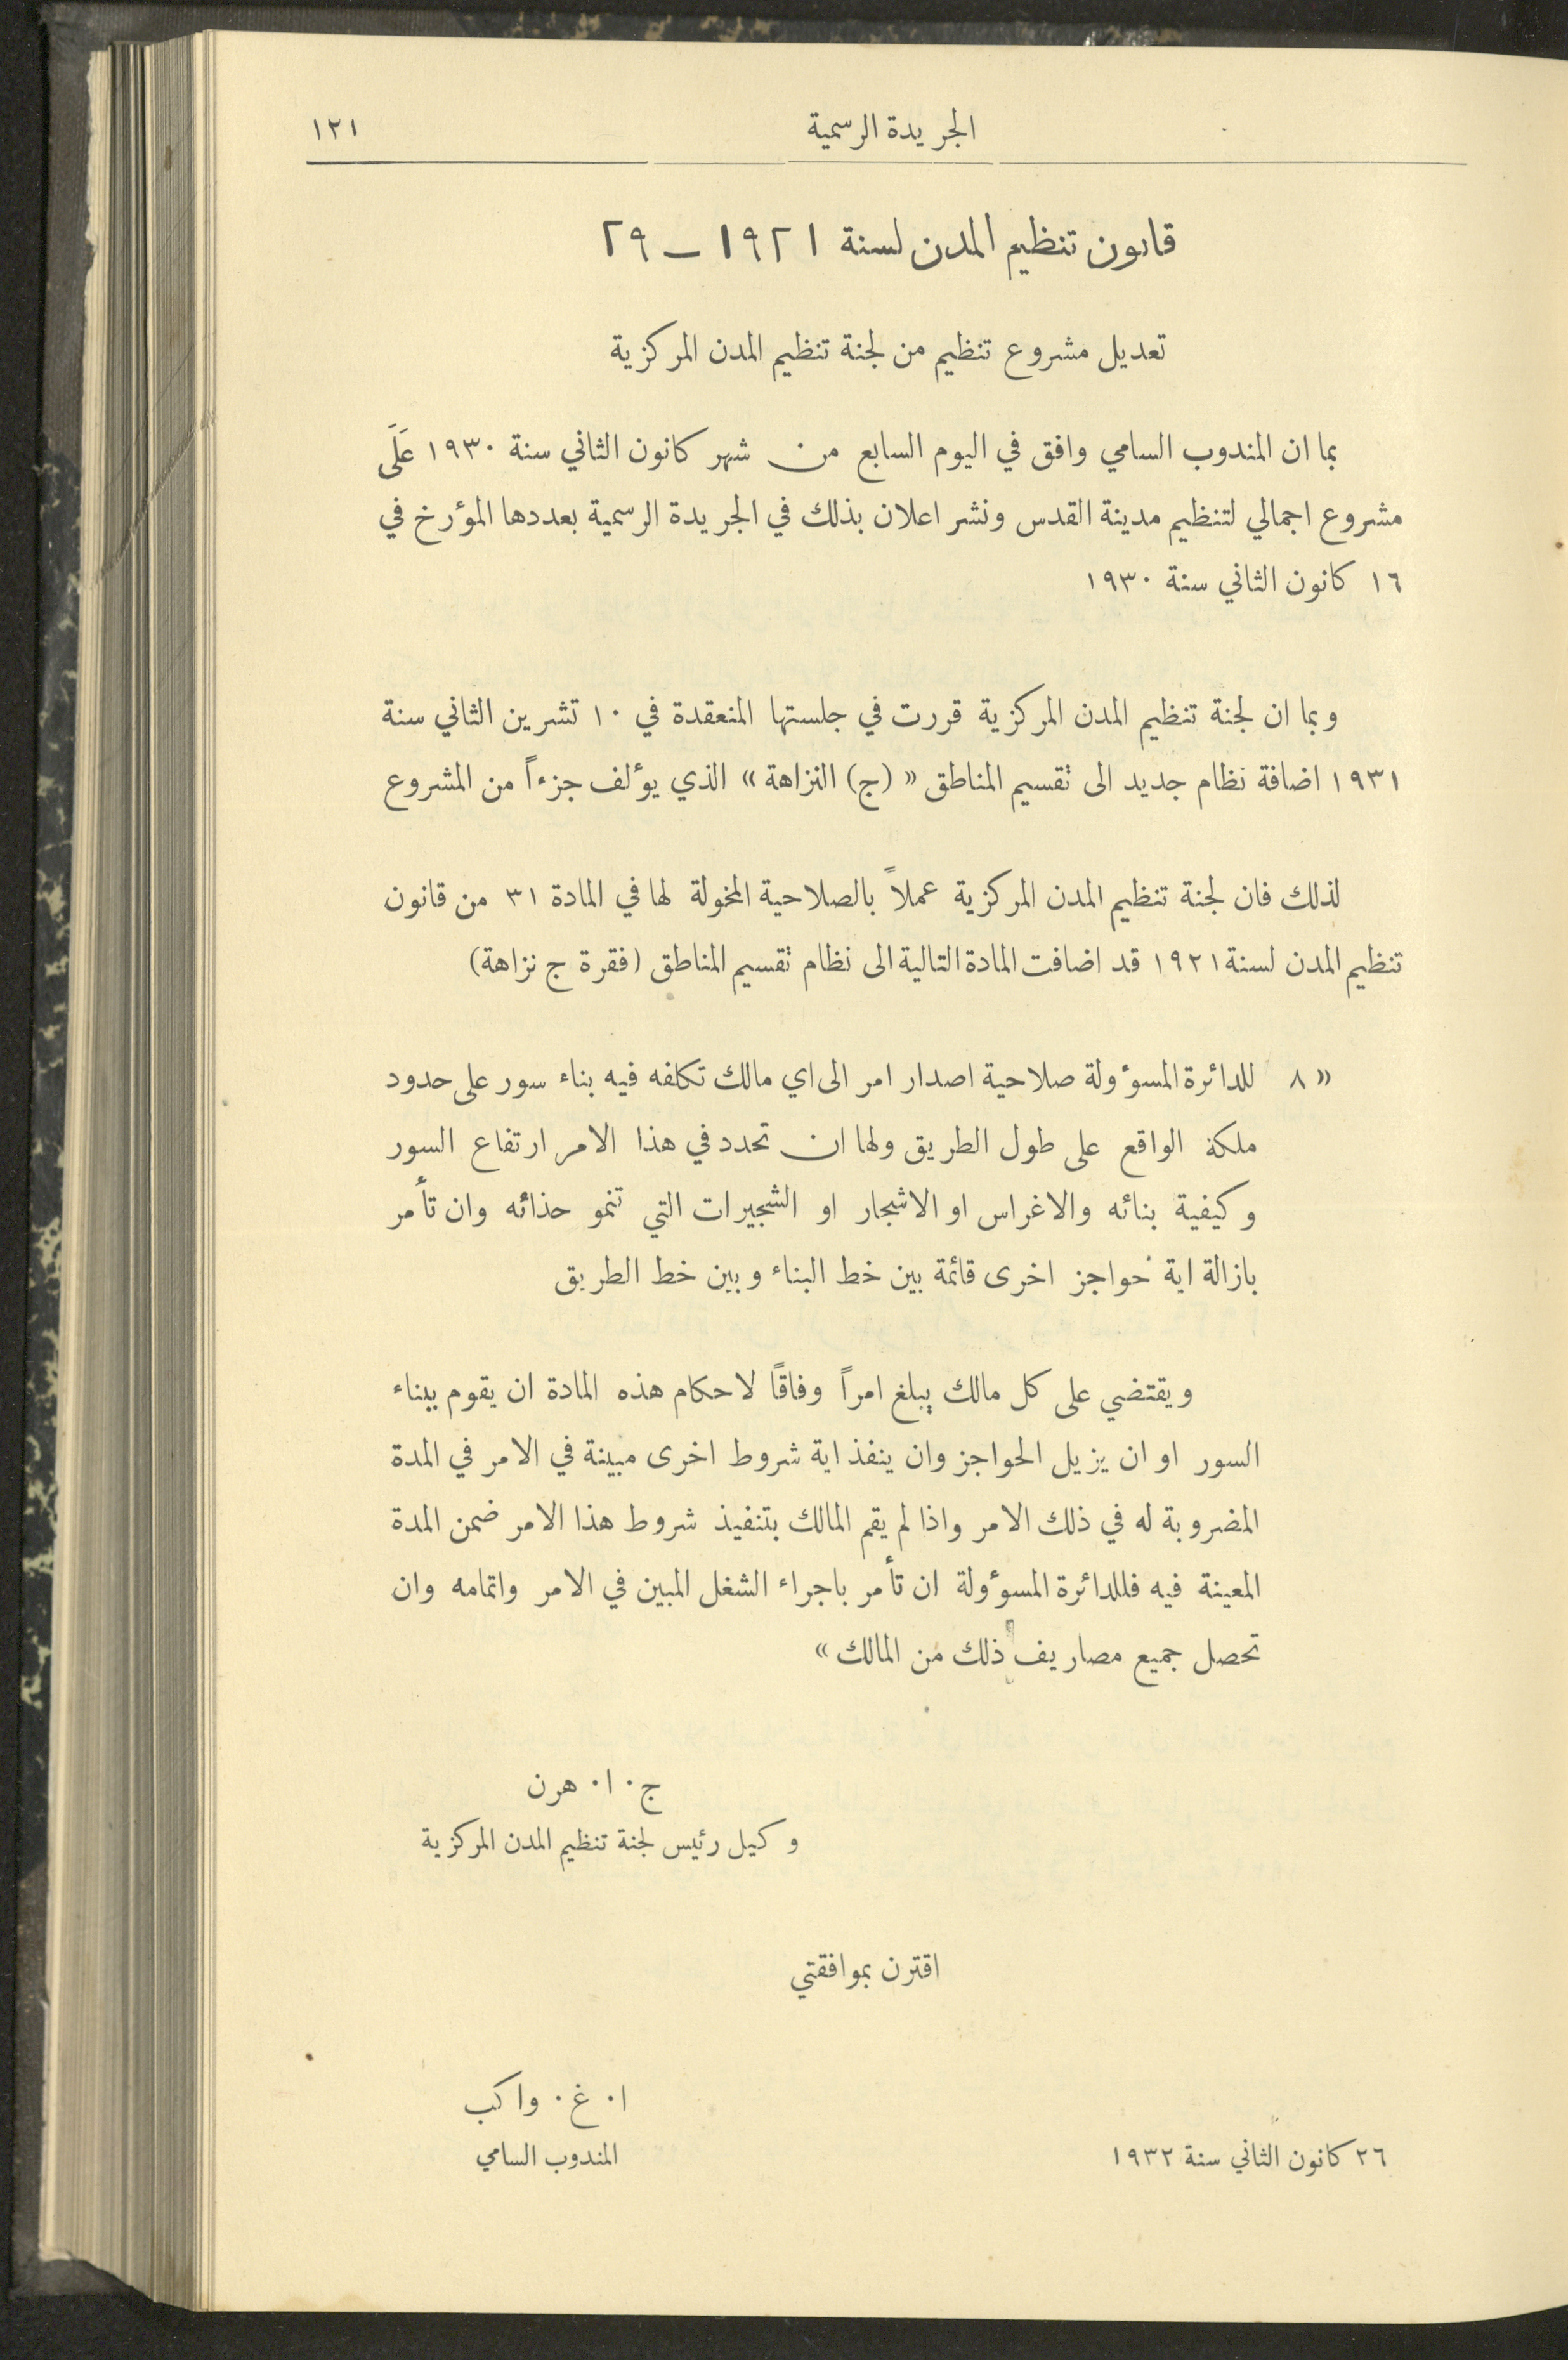 الجريدة الرسمية
١٢١
قانون تنظيم المدن لسنة ١٩٢١ — ٢٩
تعديل مشروع تنظيم من لجنة تنظيم المدن المركزية
بما ان المندوب السامي وافق في اليوم السابع من شهر كانون الثاني سنة ١٩٣٠ عَلَى
مشروع اجمالي لتنظيم مدينة القدس ونشر اعلان بذلك في الجريدة الرسمية بعددها المؤرخ في
١٦ كانون الثاني سنة ١٩٣٠
وبما ان لجنة تنظيم المدن المركزية قررت في جلستها المنعقدة في ١٠ تشرين الثاني سنة
١٩٣١ اضافة نظام جديد الى تقسيم المناطق « (ج) النزاهة » الذي يؤلف جزءاً من المشروع
لذلك فان لجنة تنظيم المدن المركزية عملاً بالصلاحية المخولة لها في المادة ٣١ من قانون
تنظيم المدن لسنة ١٩٢١ قد اضافت المادة التالية الى نظام تقسيم المناطق (فقرة ج نزاهة)
« ٨ للدائرة المسؤولة صلاحية اصدار امر الى اي مالك تكلفه فيه بناء سور على حدود
ملكه الواقع على طول الطريق ولها ان تحدد في هذا الامر ارتفاع السور
وكيفية بنائه والاغراس او الاشجار او الشجيرات التي تنمو حذائه وان تأمر
بازالة اية حواجز اخرى قائمة بين خط البناء وبين خط الطريق
ويقتضي على كل مالك يبلغ امراً وفاقاً لاحكام هذه المادة ان يقوم ببناء
السور او ان يزيل الحواجز وان ينفذ اية شروط اخرى مبينة في الامر في المدة
المضروبة له في ذلك الامر واذا لم يقم المالك بتنفيذ شروط هذا الامر ضمن المدة
المعينة فيه فللدائرة المسؤولة ان تأمر باجراء الشغل المبين في الامر واتمامه وان
تحصل جميع مصاريف ذلك من المالك »
ج. ا. هرن
وكيل رئيس لجنة تنظيم المدن المركزية
اقترن بموافقتي
ا. غ. واكب
٢٦ كانون الثاني سنة ١٩٣٢
المندوب السامي